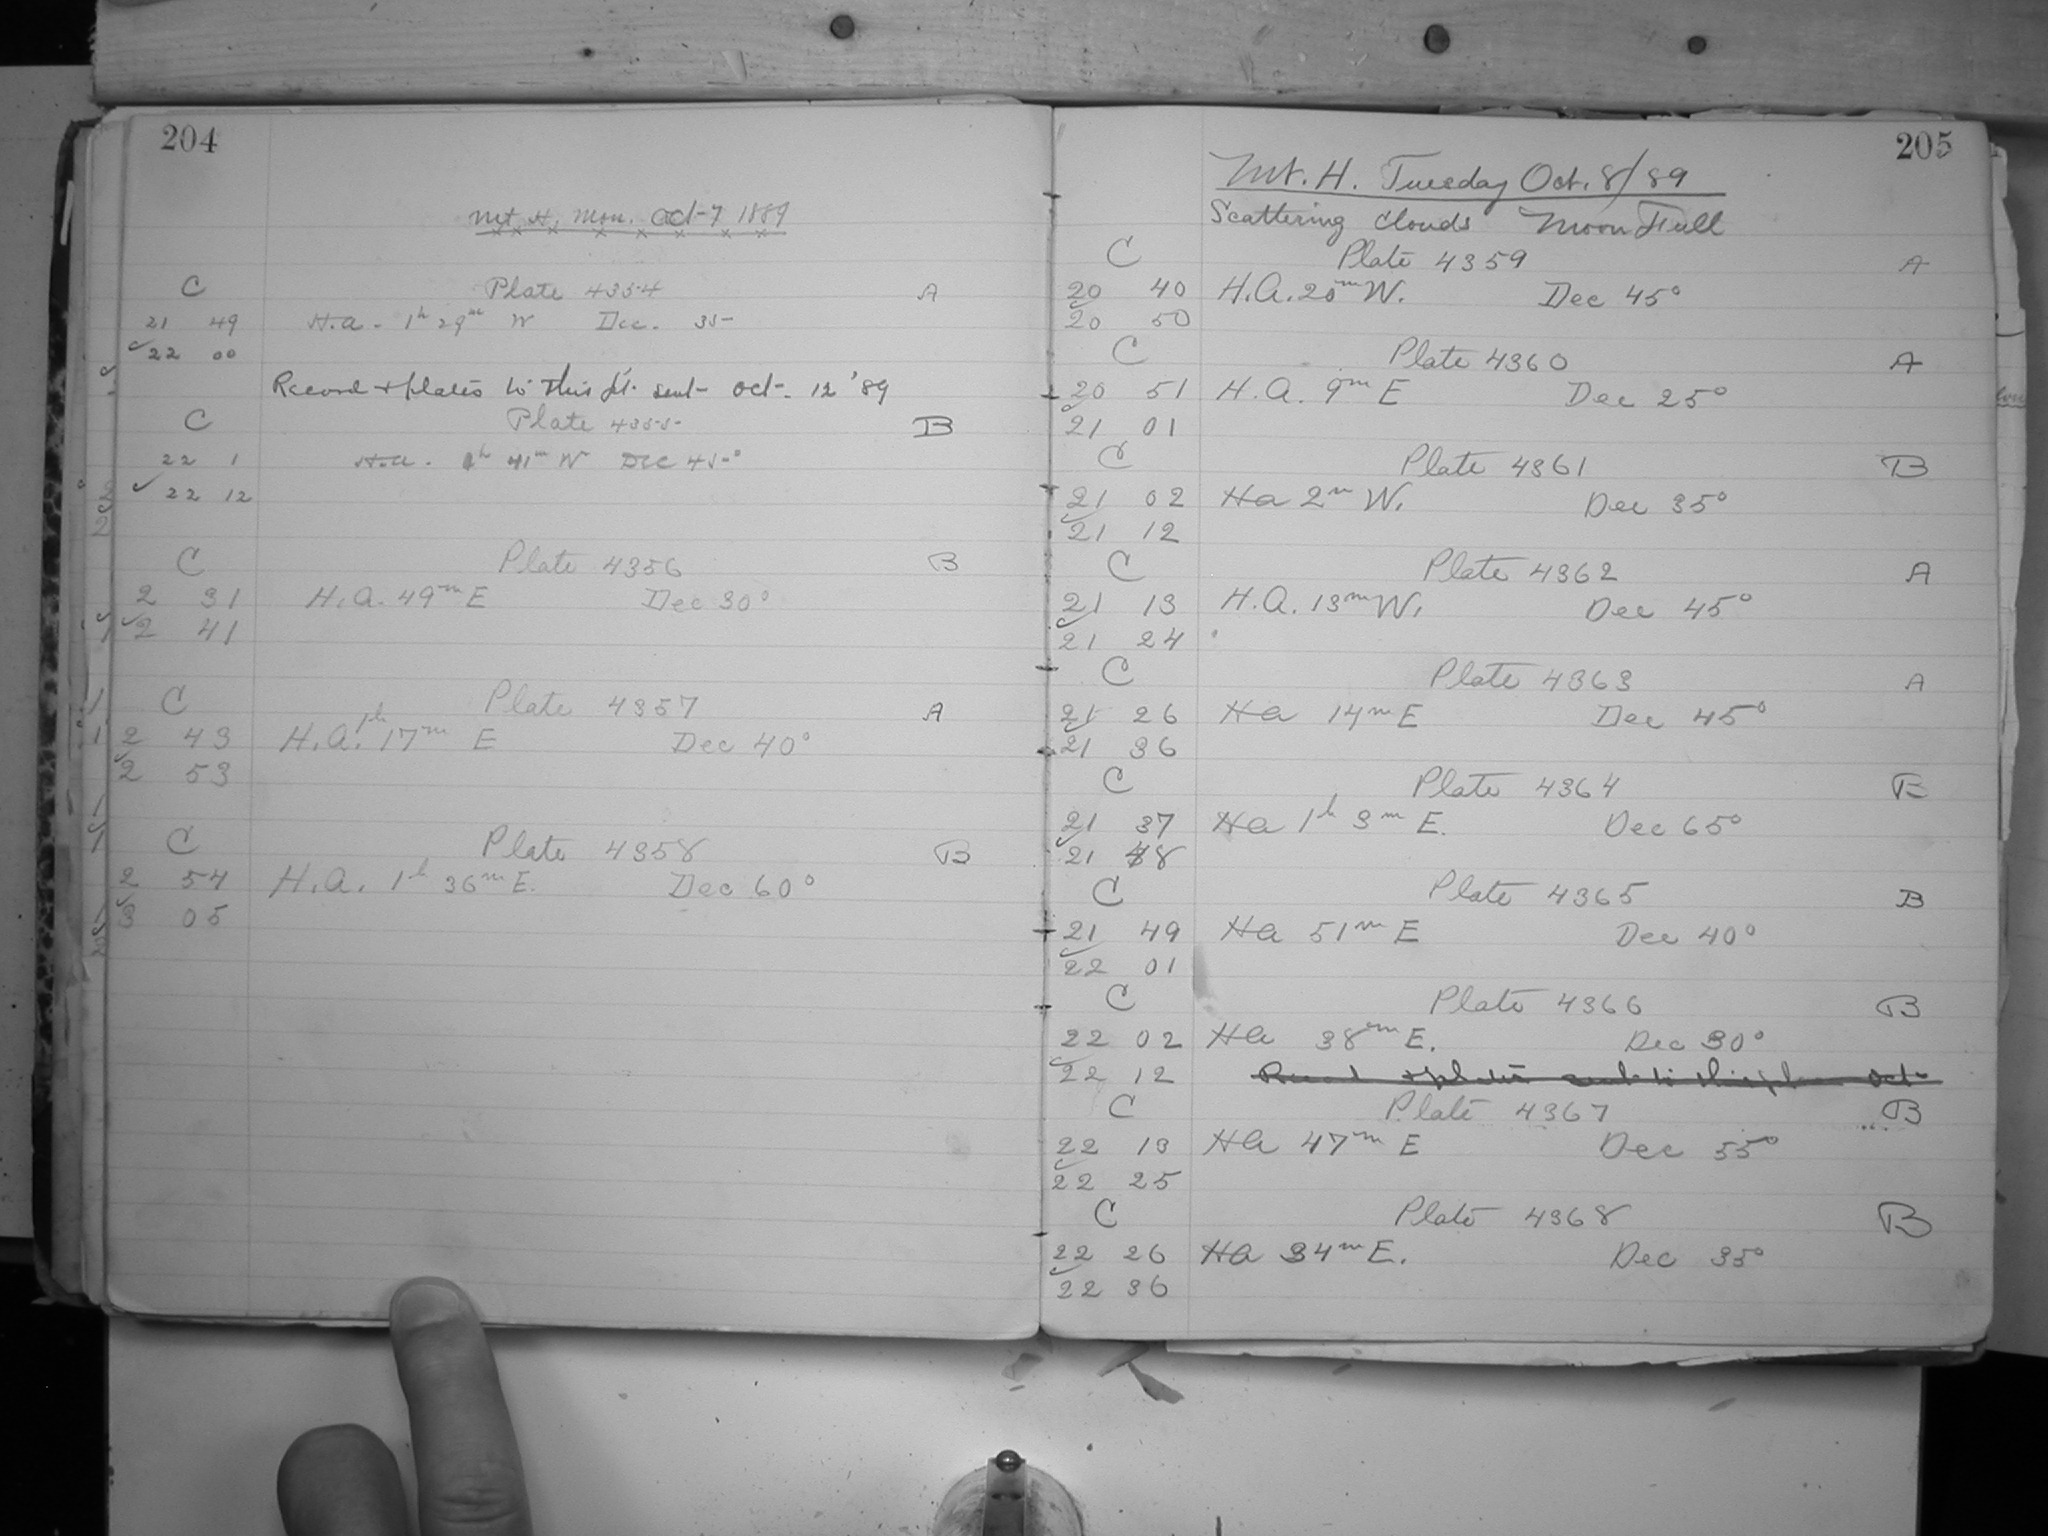 204
Mt H. Mon. Oct-7 1889
C Plate 4354 A
21 49 H.a. - 1h 29m W Dec. 35
22 00
Record + plates to this pt. sent Oct. 12 '89
C Plate 4355 B
22 1 H.a. - 1h 41m W Dec 45°
22 12
C Plate 4356 B
2 31 H.A. 49m E Dec 30°
2 41
C Plate 4357 A
2 43 H.A. 1h 17m E Dec 40°
2 53
C Plate 4358 B
2 54 H.A. 1h 36m E. Dec 60°
3 05
205
Mt. H. Tuesday Oct. 8/89
Scattering clouds Moon Full
C Plate 4359 A
20 40 H.A. 20m W. Dec 45°
20 50
C Plate 4360 A
20 51 H.A. 9m E Dec 25°
21 01
C Plate 4361 B
21 02 Ha 2m W. Dec 35°
21 12
C Plate 4362 A
21 13 H.A. 13m W. Dec 45°
21 24
C Plate 4363 A
21 26 Ha 14m E Dec 45°
21 36
C Plate 4364 B
21 37 Ha 1h 3m E. Dec 65°
21 48
C Plate 4365 B
21 49 Ha 51m E Dec 40°
22 01
C Plate 4366 B
22 02 Ha 38m E. Dec 30°
22 12 Record + plates sent to this Oct
C Plate 4367 B
22 13 Ha 47m E Dec 55°
22 25
C Plate 4368 B
22 26 Ha 34m E. Dec 35°
22 36